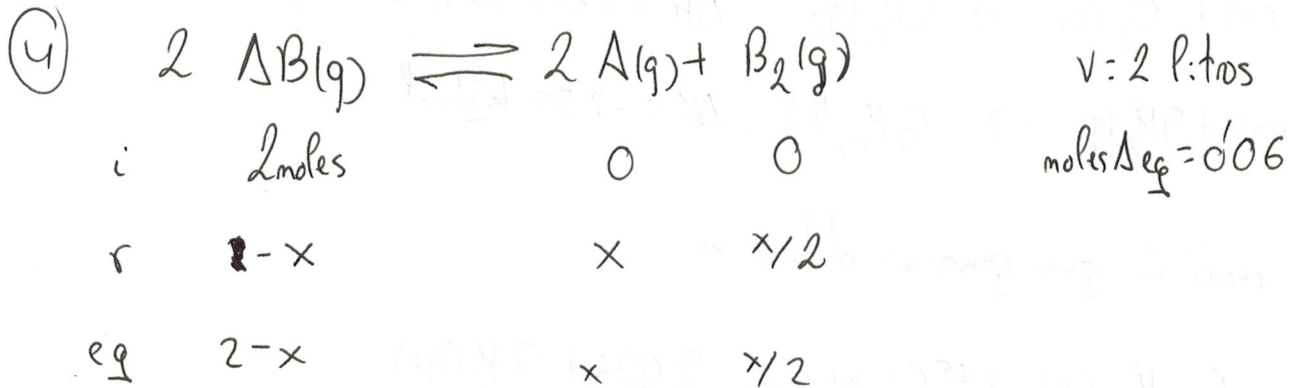 4 2 AB(g) ⇌ 2 A(g) + B₂(g) V: 2 litros
i 2moles 0 0 moles A eq = 0'06
r - x x x/2
eq 2-x x x/2